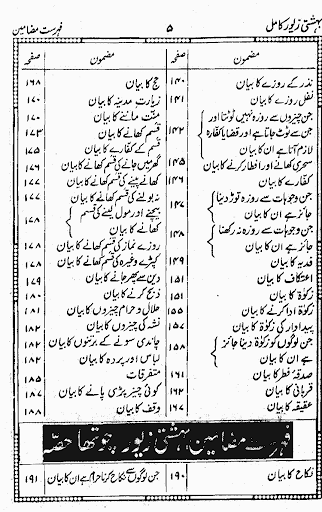 بہشتی زیور کامل ۵ فہرست مضامین
مضمون صفحہ
نذر کے روزے کا بیان ۱۴۰
نفل روزے کا بیان ۱۴۱
جن چیزوں سے روزہ نہیں ٹوٹتا اور
جن سے ٹوٹ جاتا ہے اور قضا یا کفارہ ۱۴۲
لازم آتا ہے ان کا بیان
سحری کھانے اور افطار کرنے کا بیان ۱۴۵
کفارے کا بیان ۱۴۶
جن وجوہات سے روزہ توڑ دینا
جائز ہے ان کا بیان ۱۴۷
جن وجوہات سے روزہ نہ رکھنا
جائز ہے ان کا بیان ۱۴۸
فدیہ کا بیان ۱۴۹
اعتکاف کا بیان ۱۵۱
زکوٰۃ کا بیان ۱۵۱
زکوٰۃ ادا کرنے کا بیان ۱۵۵
پیداوار کی زکوٰۃ کا بیان ۱۵۷
جن لوگوں کو زکوٰۃ دینا جائز
ہے ان کا بیان ۱۵۸
صدقۂ فطر کا بیان ۱۶۱
قربانی کا بیان ۱۶۲
عقیقہ کا بیان ۱۶۷
مضمون صفحہ
حج کا بیان ۱۶۸
زیارت مدینہ کا بیان ۱۷۰
منت ماننے کا بیان ۱۷۰
قسم کھانے کا بیان ۱۷۳
قسم کے کفارے کا بیان ۱۷۵
گھر میں جانے کی قسم کھانے کا بیان ۱۷۶
کھانے پینے کی قسم کھانے کا بیان ۱۷۷
نہ بولنے کی قسم کھانے کا بیان ۱۷۷
بیچنے اور مول لینے کی قسم
کھانے کا بیان ۱۷۸
روزے نماز کی قسم کھانے کا بیان ۱۷۸
کپڑے وغیرہ کی قسم کھانے کا بیان ۱۷۸
دین سے پھر جانے کا بیان ۱۷۹
ذبح کرنے کا بیان ۱۸۰
حلال و حرام چیزوں کا بیان ۱۸۱
نشہ کی چیزوں کا بیان ۱۸۲
چاندی سونے کے برتنوں کا بیان ۱۸۲
لباس اور پردہ کا بیان ۱۸۲
متفرقات ۱۸۵
کوئی چیز پڑی پانے کا بیان ۱۸۷
وقف کا بیان ۱۸۸
فہرست مضامین بہشتی زیور چوتھا حصہ
نکاح کا بیان ۱۹۰
جن لوگوں سے نکاح کرنا حرام ہے ان کا بیان ۱۹۱